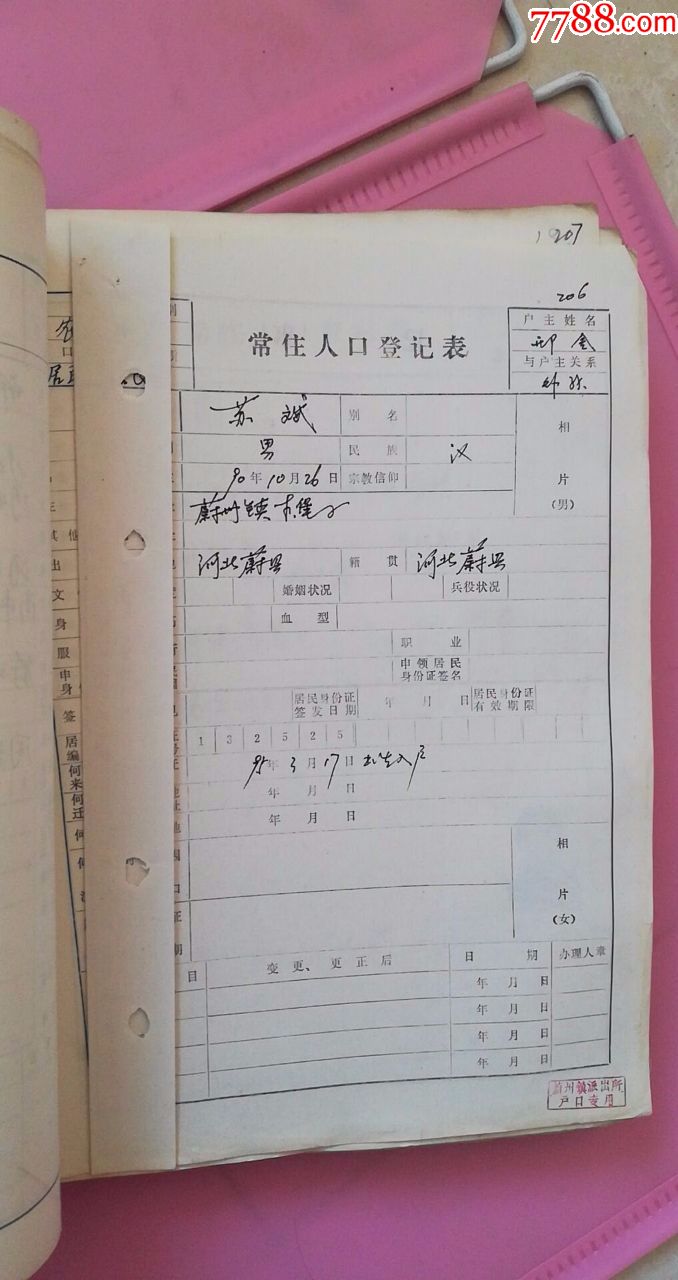 7788.com
207
206
户主姓名
邢金
与户主关系
外孙
常住人口登记表
苏斌 别名
男 民族 汉
90年10月26日 宗教信仰
相
片
(男)
蔚州镇
河北蔚县 籍贯 河北蔚县
婚姻状况 兵役状况
血型
职业
申领居民
身份证签名
居民身份证
签发日期
年 月 日
居民身份证
有效期限
1 3 2 5 2 5
95年3月17日 出生入户
年 月 日
年 月 日
相
片
(女)
目 变更、更正后 日期 办理人章
年 月 日
年 月 日
年 月 日
年 月 日
蔚州镇派出所
户口专用
其他
出
文
身
服
申
身
签
居
编
何
来
何
迁